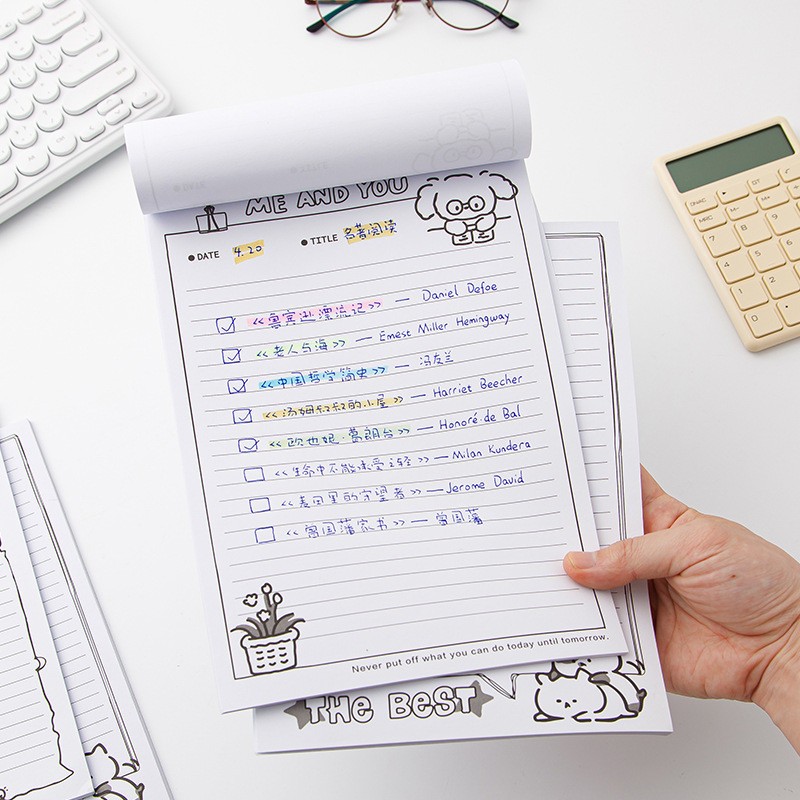 ME AND YOU
DATE 4.20 TITLE 名著阅读
☑ 《鲁宾逊漂流记》 — Daniel Defoe
☑ 《老人与海》 — Ernest Miller Hemingway
☑ 《中国哲学简史》 — 冯友兰
☑ 《汤姆叔叔的小屋》 — Harriet Beecher
☑ 《欧也妮·葛朗台》 — Honoré de Bal
☐ 《生命中不能承受之轻》 — Milan Kundera
☐ 《麦田里的守望者》 — Jerome David
☐ 《曾国藩家书》 — 曾国藩
Never put off what you can do today until tomorrow.
THE BEST
GT
MRC M- M+
7 8 9
4 5
1 2
0